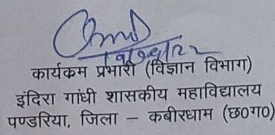 19/04/22
कार्यकम प्रभारी (विज्ञान विभाग)
इंदिरा गांधी शासकीय महाविद्यालय
पण्डरिया, जिला – कबीरधाम (छ0ग0)